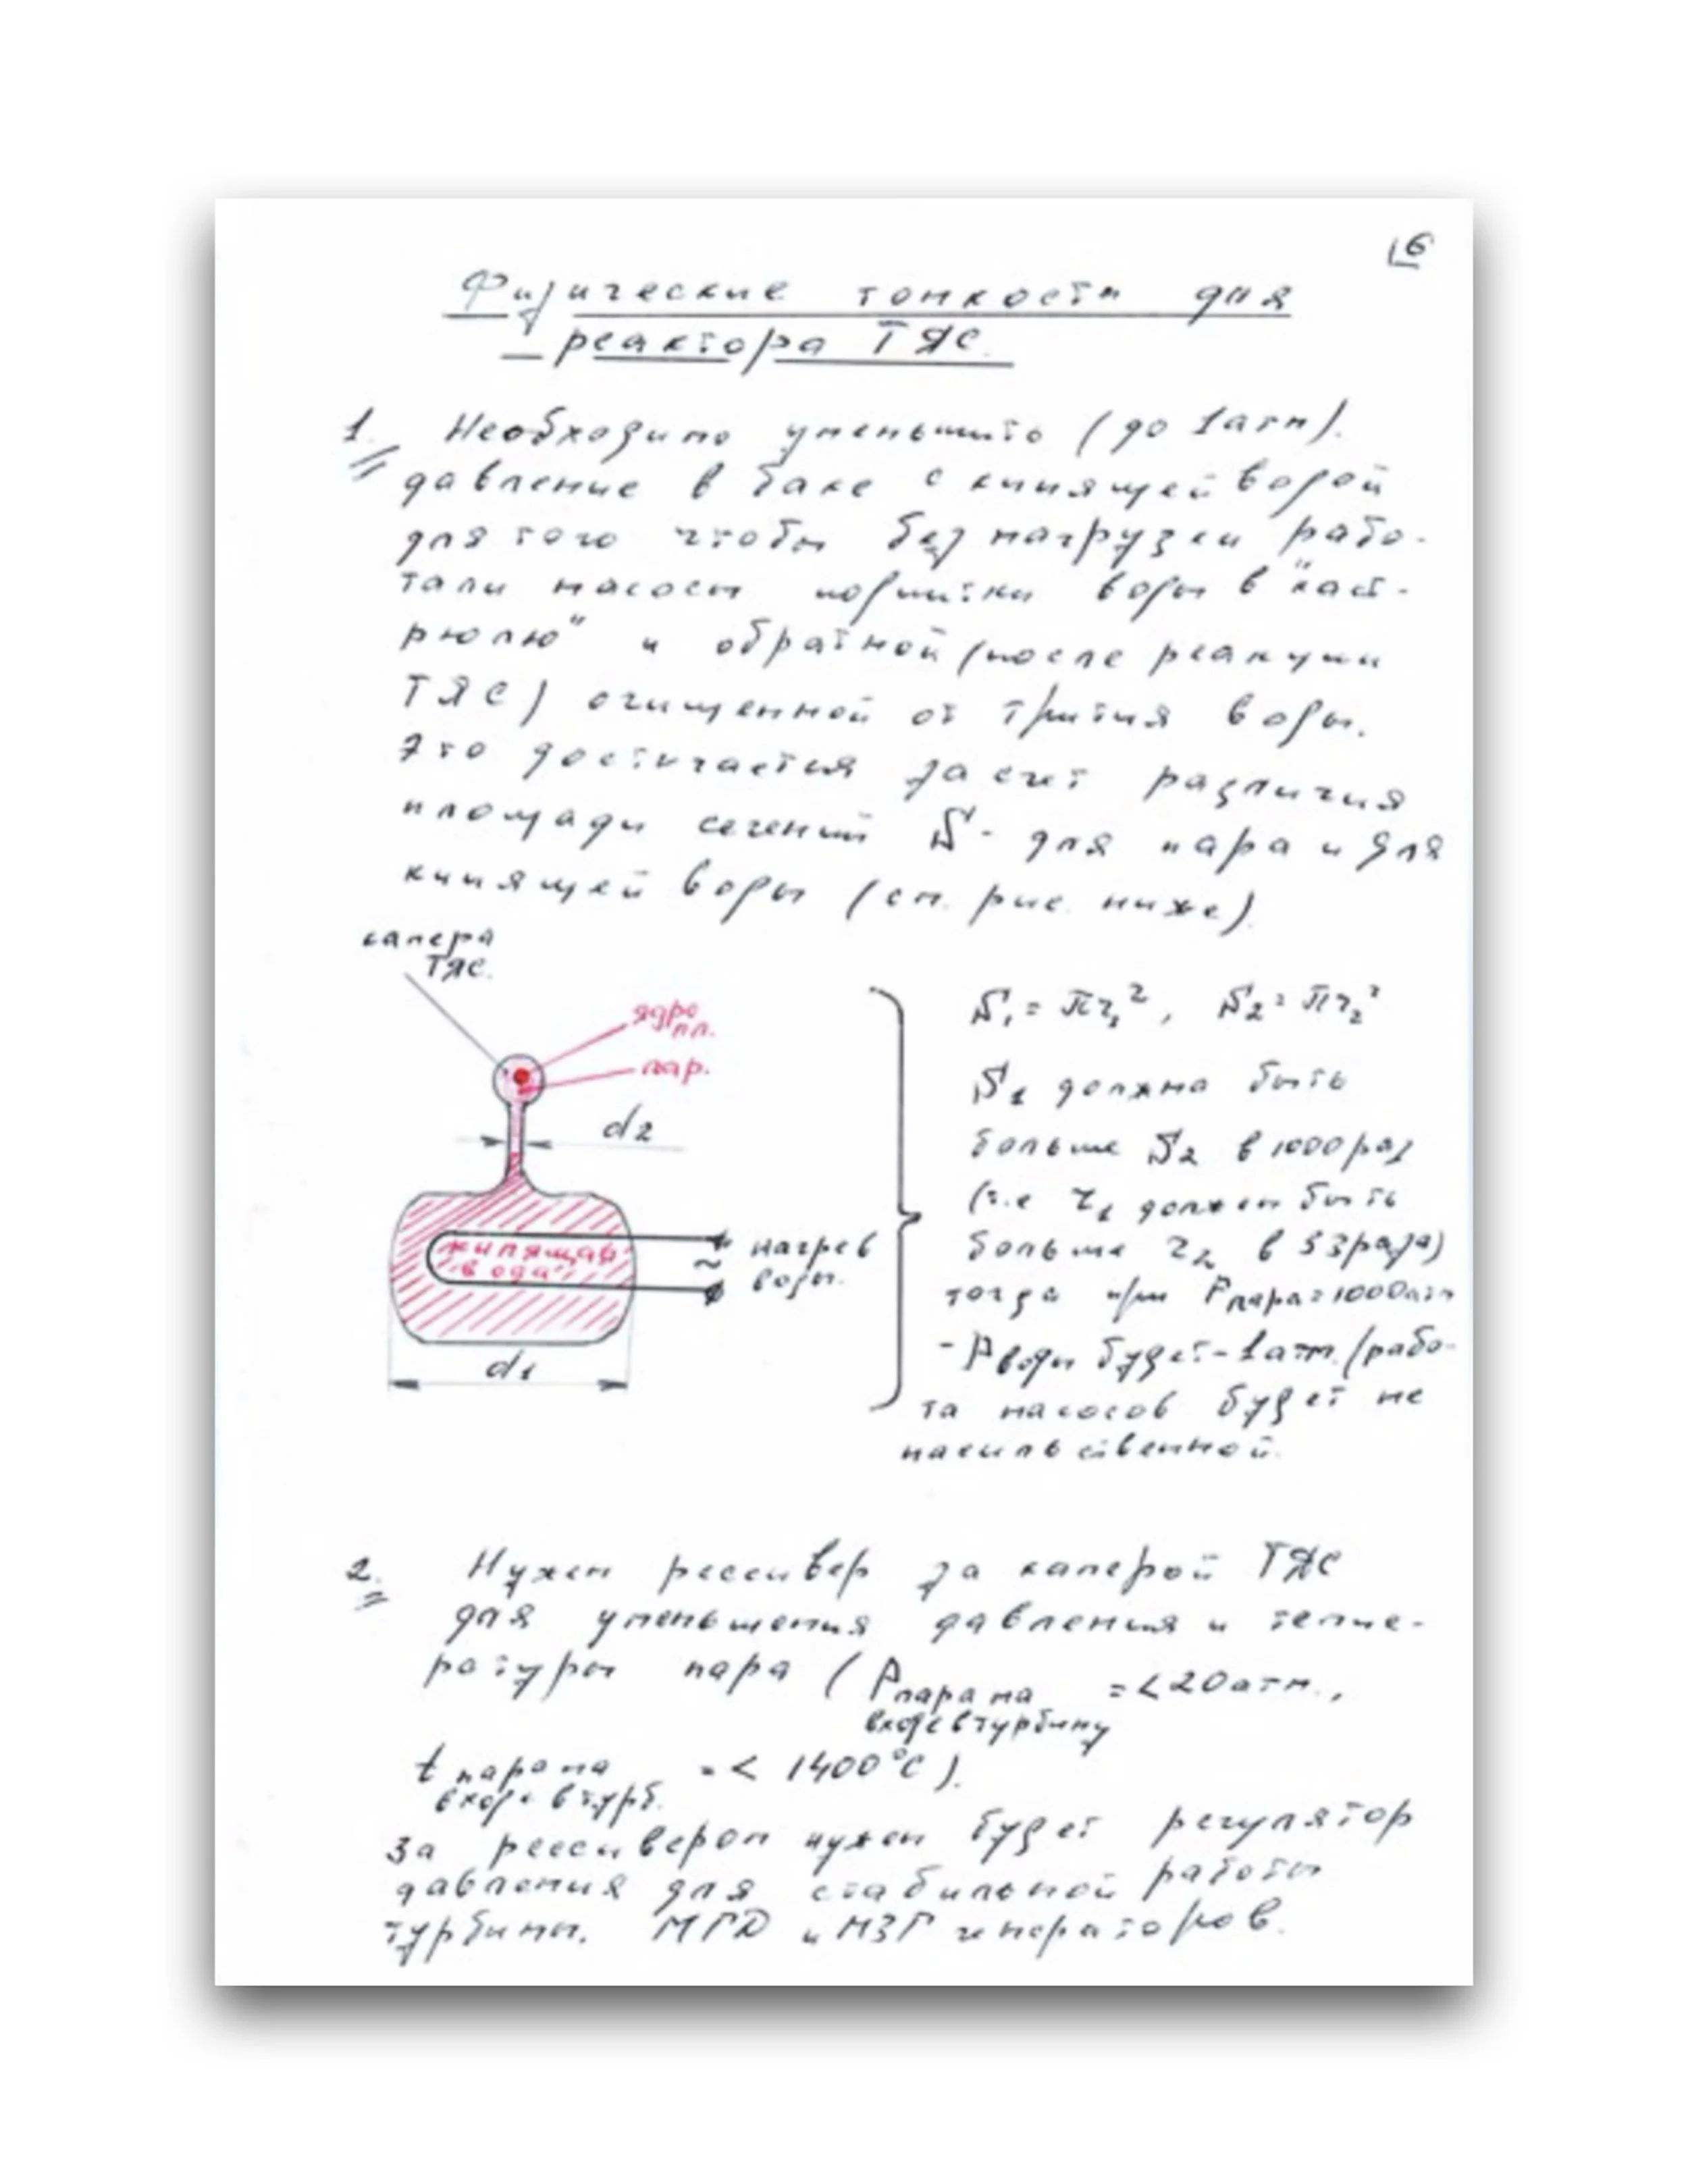 6
Физические тонкости для
реактора ТЯС.
1. Необходимо уменьшить (до 1атм).
давление в баке с кипящей водой
для того чтобы без нагрузки рабо-
тали насосы подпитки воды в "каст-
рюлю" и обратной (после реакции
ТЯС) очищенной от трития воды.
Это достигается за счет различия
площади сечений S - для пара и для
кипящей воды (см. рис. ниже).
камера
ТЯС.
ядро
пл.
пар.
d2
кипящая
вода
нагрев
воды.
~
d1
S₁ = πr₁², S₂ = πr₂²
S₁ должна быть
больше S₂ в 1000 раз
(т.е r₁ должен быть
больше r₂ в 33раза)
тогда при Pпара=1000атм
- Pводы будет - 1атм. (рабо-
та насосов будет не
насильственной.
2. Нужен рессивер за камерой ТЯС
для уменьшения давления и темпе-
ратуры пара (Pпара на =<20атм.,
входе в турбину
t пара на =< 1400°C).
входе в турб.
За рессивером нужен будет регулятор
давления для стабильной работы
турбины, МГД и МЗГ генераторов.